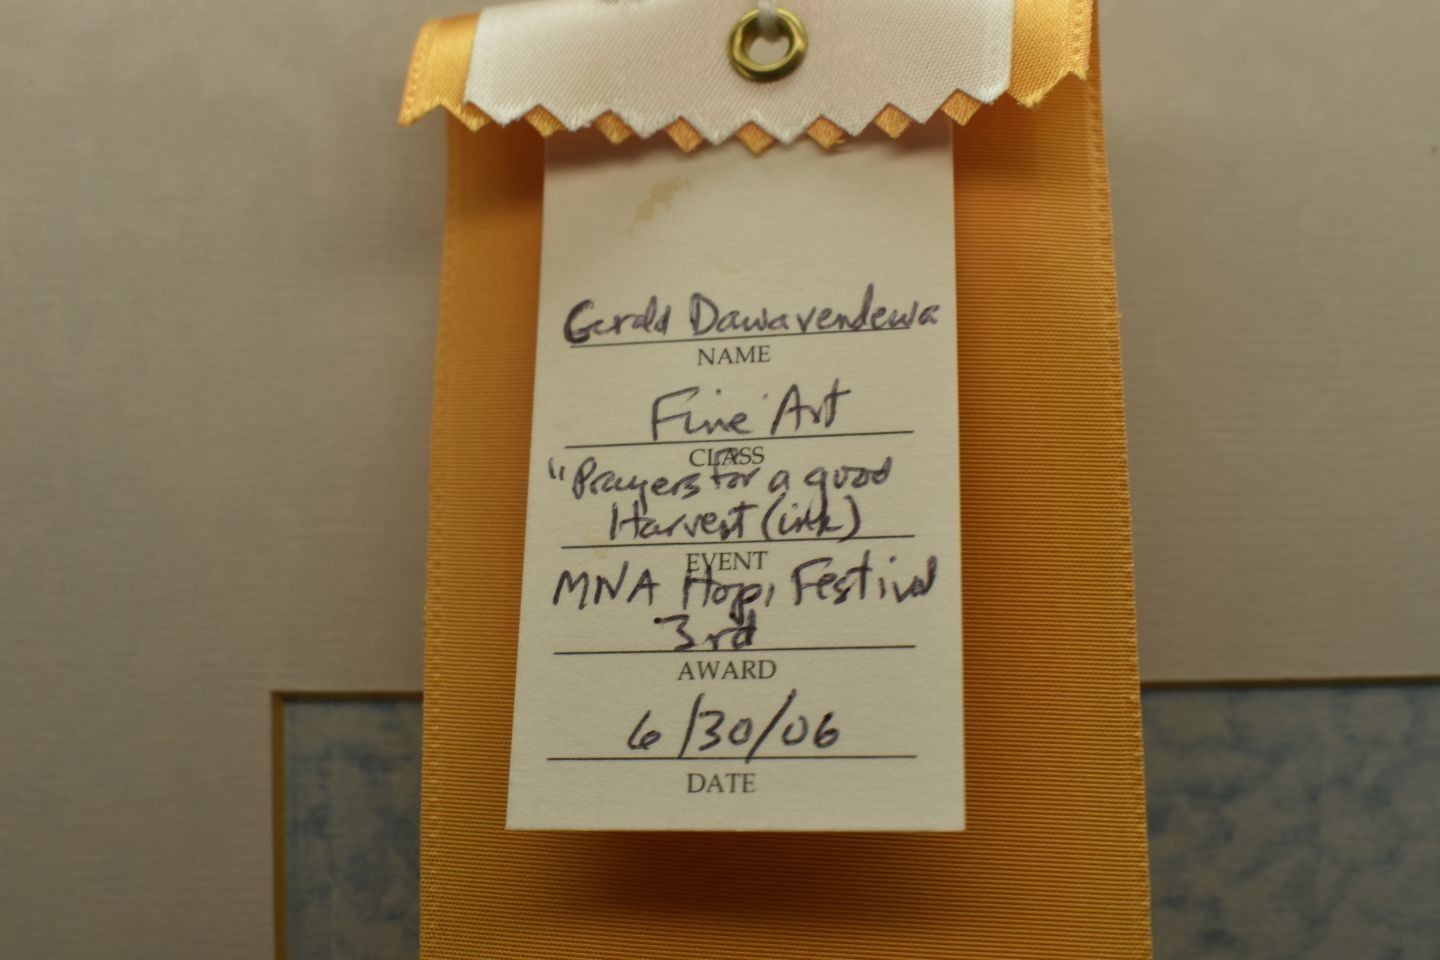 Gerald Dawavendewa
NAME
Fine Art
CLASS
"Prayers for a good
Harvest (ink)
EVENT
MNA Hopi Festival
3rd
AWARD
6/30/06
DATE